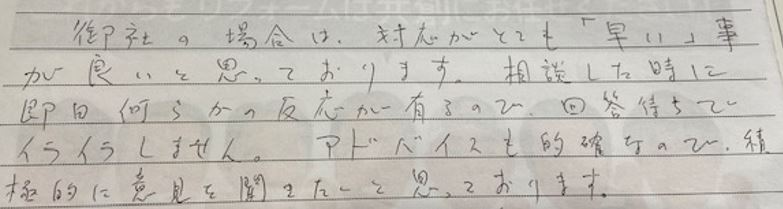 御社の場合は、対応がとても「早い」事
が良いと思っております。相談した時に
即日何らかの反応が有るので、回答待ちで
イライラしません。アドバイスも的確なので、積
極的に意見を聞きたいと思っております。